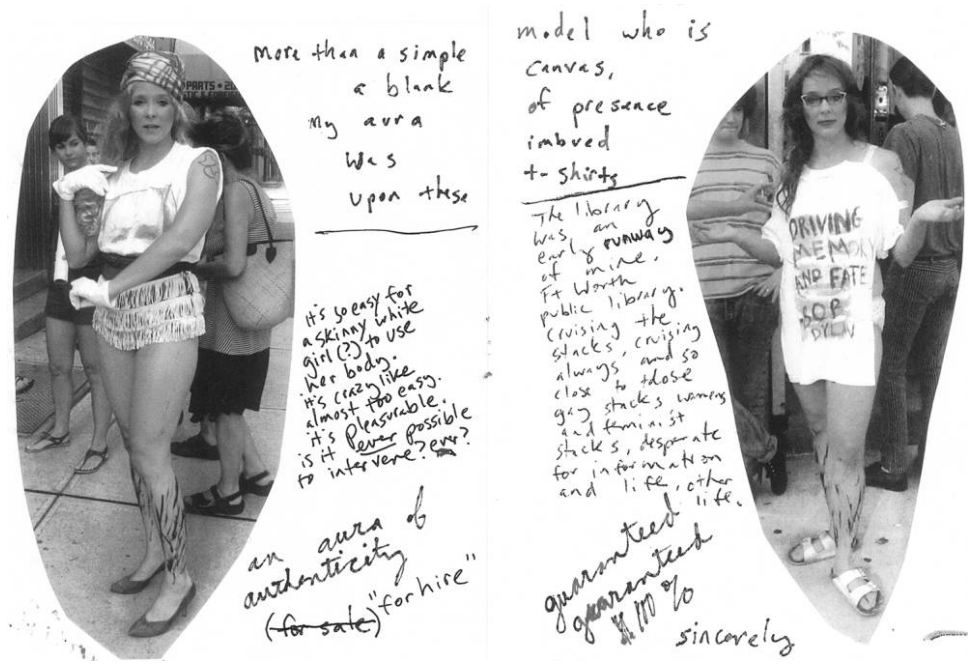 More than a simple
a blank
My aura
was
upon these
it's so easy for
a skinny white
girl (?) to use
her body.
it's crazy like
almost too easy.
it's pleasurable.
is it ever possible
to intervene? ever?
an aura of
authenticity
(for sale) "for hire"
PARTS
model who is
canvas,
of presence
imbued
t-shirts
The library
was an
early runway
of mine.
Ft Worth
public library.
cruising the
stacks, cruising
always and so
close to those
gay stacks womens
and feminist
stacks, desperate
for information
and life, other
life.
guaranteed
guaranteed
100 %
sincerely
DRIVING
MEMORY
AND FATE
DYLAN